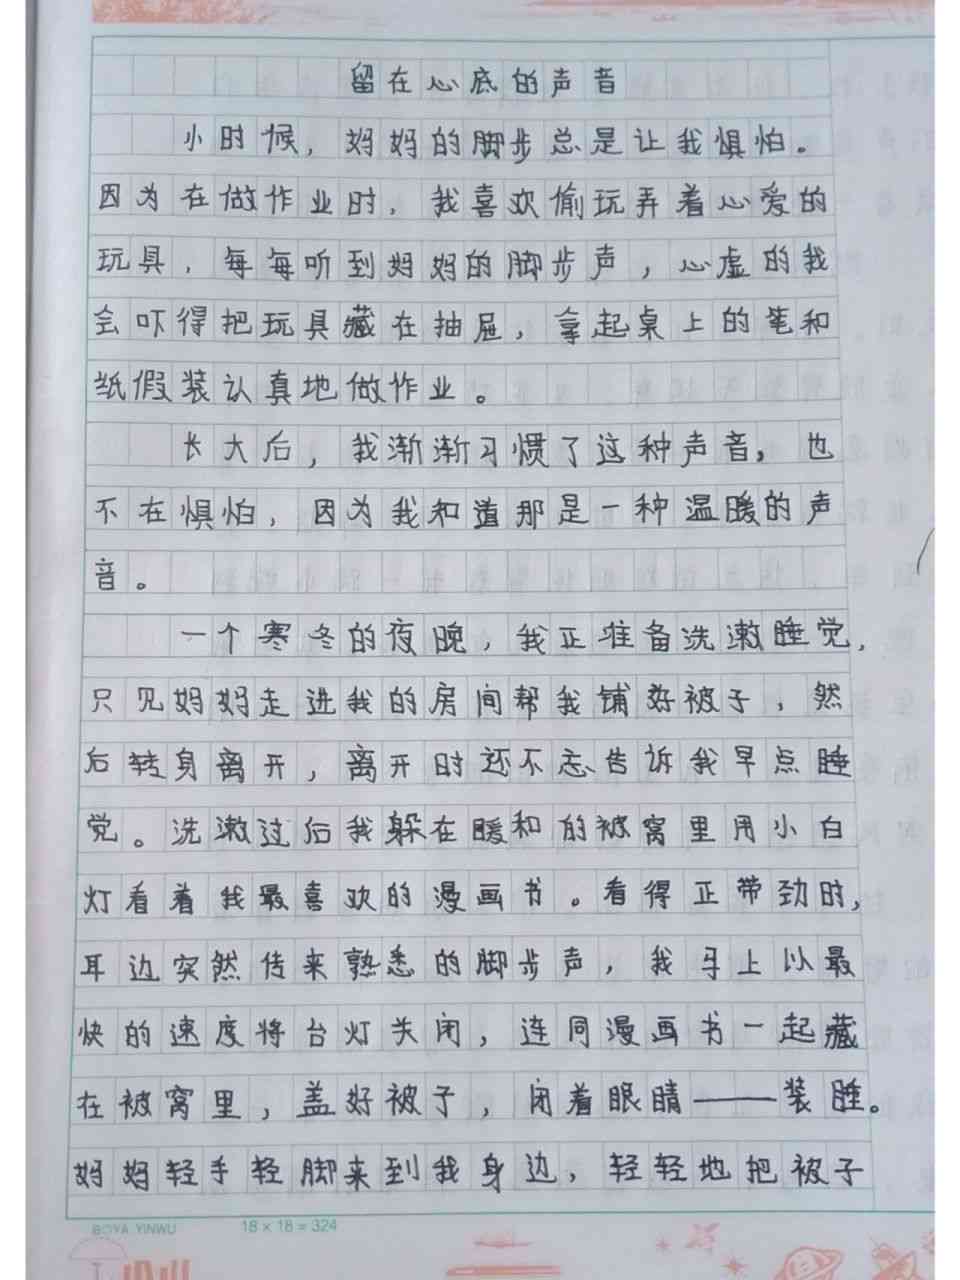 留在心底的声音
小时候，妈妈的脚步总是让我惧怕。
因为在做作业时，我喜欢偷玩弄着心爱的
玩具，每每听到妈妈的脚步声，心虚的我
会吓得把玩具藏在抽屉，拿起桌上的笔和
纸假装认真地做作业。
长大后，我渐渐习惯了这种声音，也
不在惧怕，因为我知道那是一种温暖的声
音。
一个寒冬的夜晚，我正准备洗漱睡觉，
只见妈妈走进我的房间帮我铺好被子，然
后转身离开，离开时还不忘告诉我早点睡
觉。洗漱过后我躲在暖和的被窝里用小白
灯看着我最喜欢的漫画书。看得正带劲时，
耳边突然传来熟悉的脚步声，我马上以最
快的速度将台灯关闭，连同漫画书一起藏
在被窝里，盖好被子，闭着眼睛——装睡。
妈妈轻手轻脚来到我身边，轻轻地把被子
BOYA YINWU 18×18=324